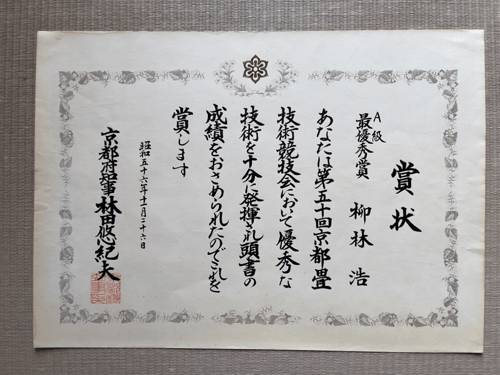 賞状
A級
最優秀賞 柳林浩
あなたは第五十回京都畳
技術競技会において優秀な
技術を十分に発揮され頭書の
成績をおさめられたのでこれを
賞します
昭和五十六年十一月二十六日
京都府知事 林田悠紀夫